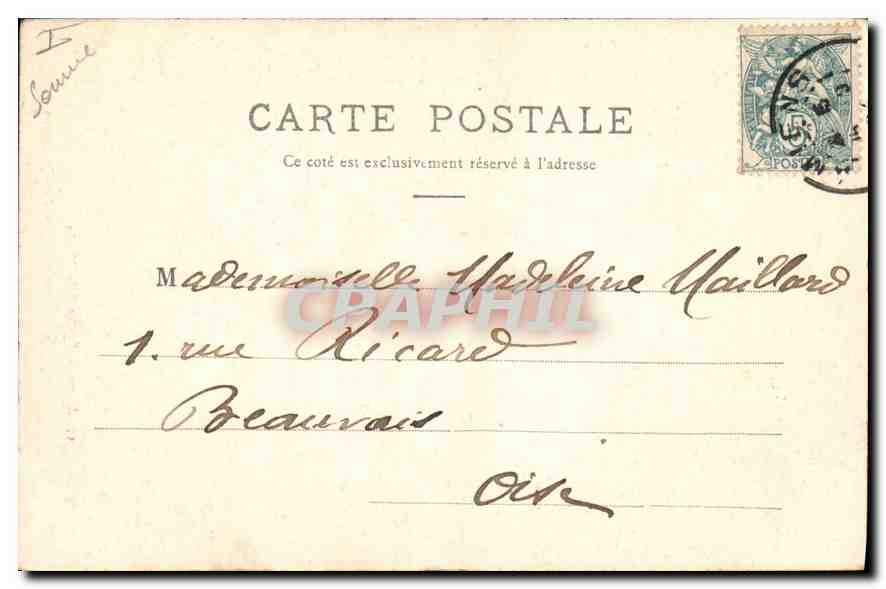 I
Somme
CARTE POSTALE
Ce coté est exclusivement réservé à l'adresse
Mademoiselle Madeleine Maillard
1. rue Ricard
Beauvais
Oise
CPAPHIL
5
POSTES